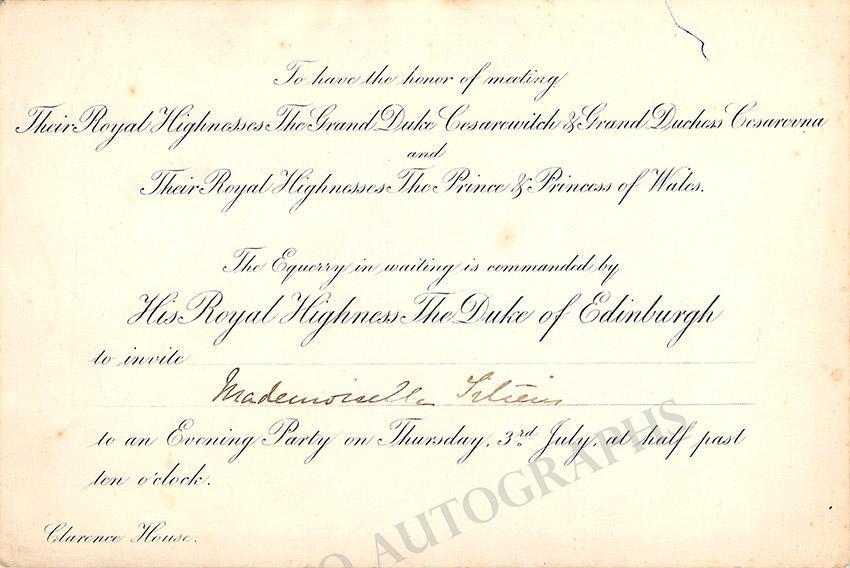 To have the honor of meeting
Their Royal Highnesses The Grand Duke Cesarewitch & Grand Duchess Cesarovna
and
Their Royal Highnesses The Prince & Princess of Wales.
The Equerry in waiting is commanded by
His Royal Highness The Duke of Edinburgh
to invite
Mademoiselle
to an Evening Party on Thursday, 3rd July, at half past
ten o'clock.
Clarence House.
AUTOGRAPHS